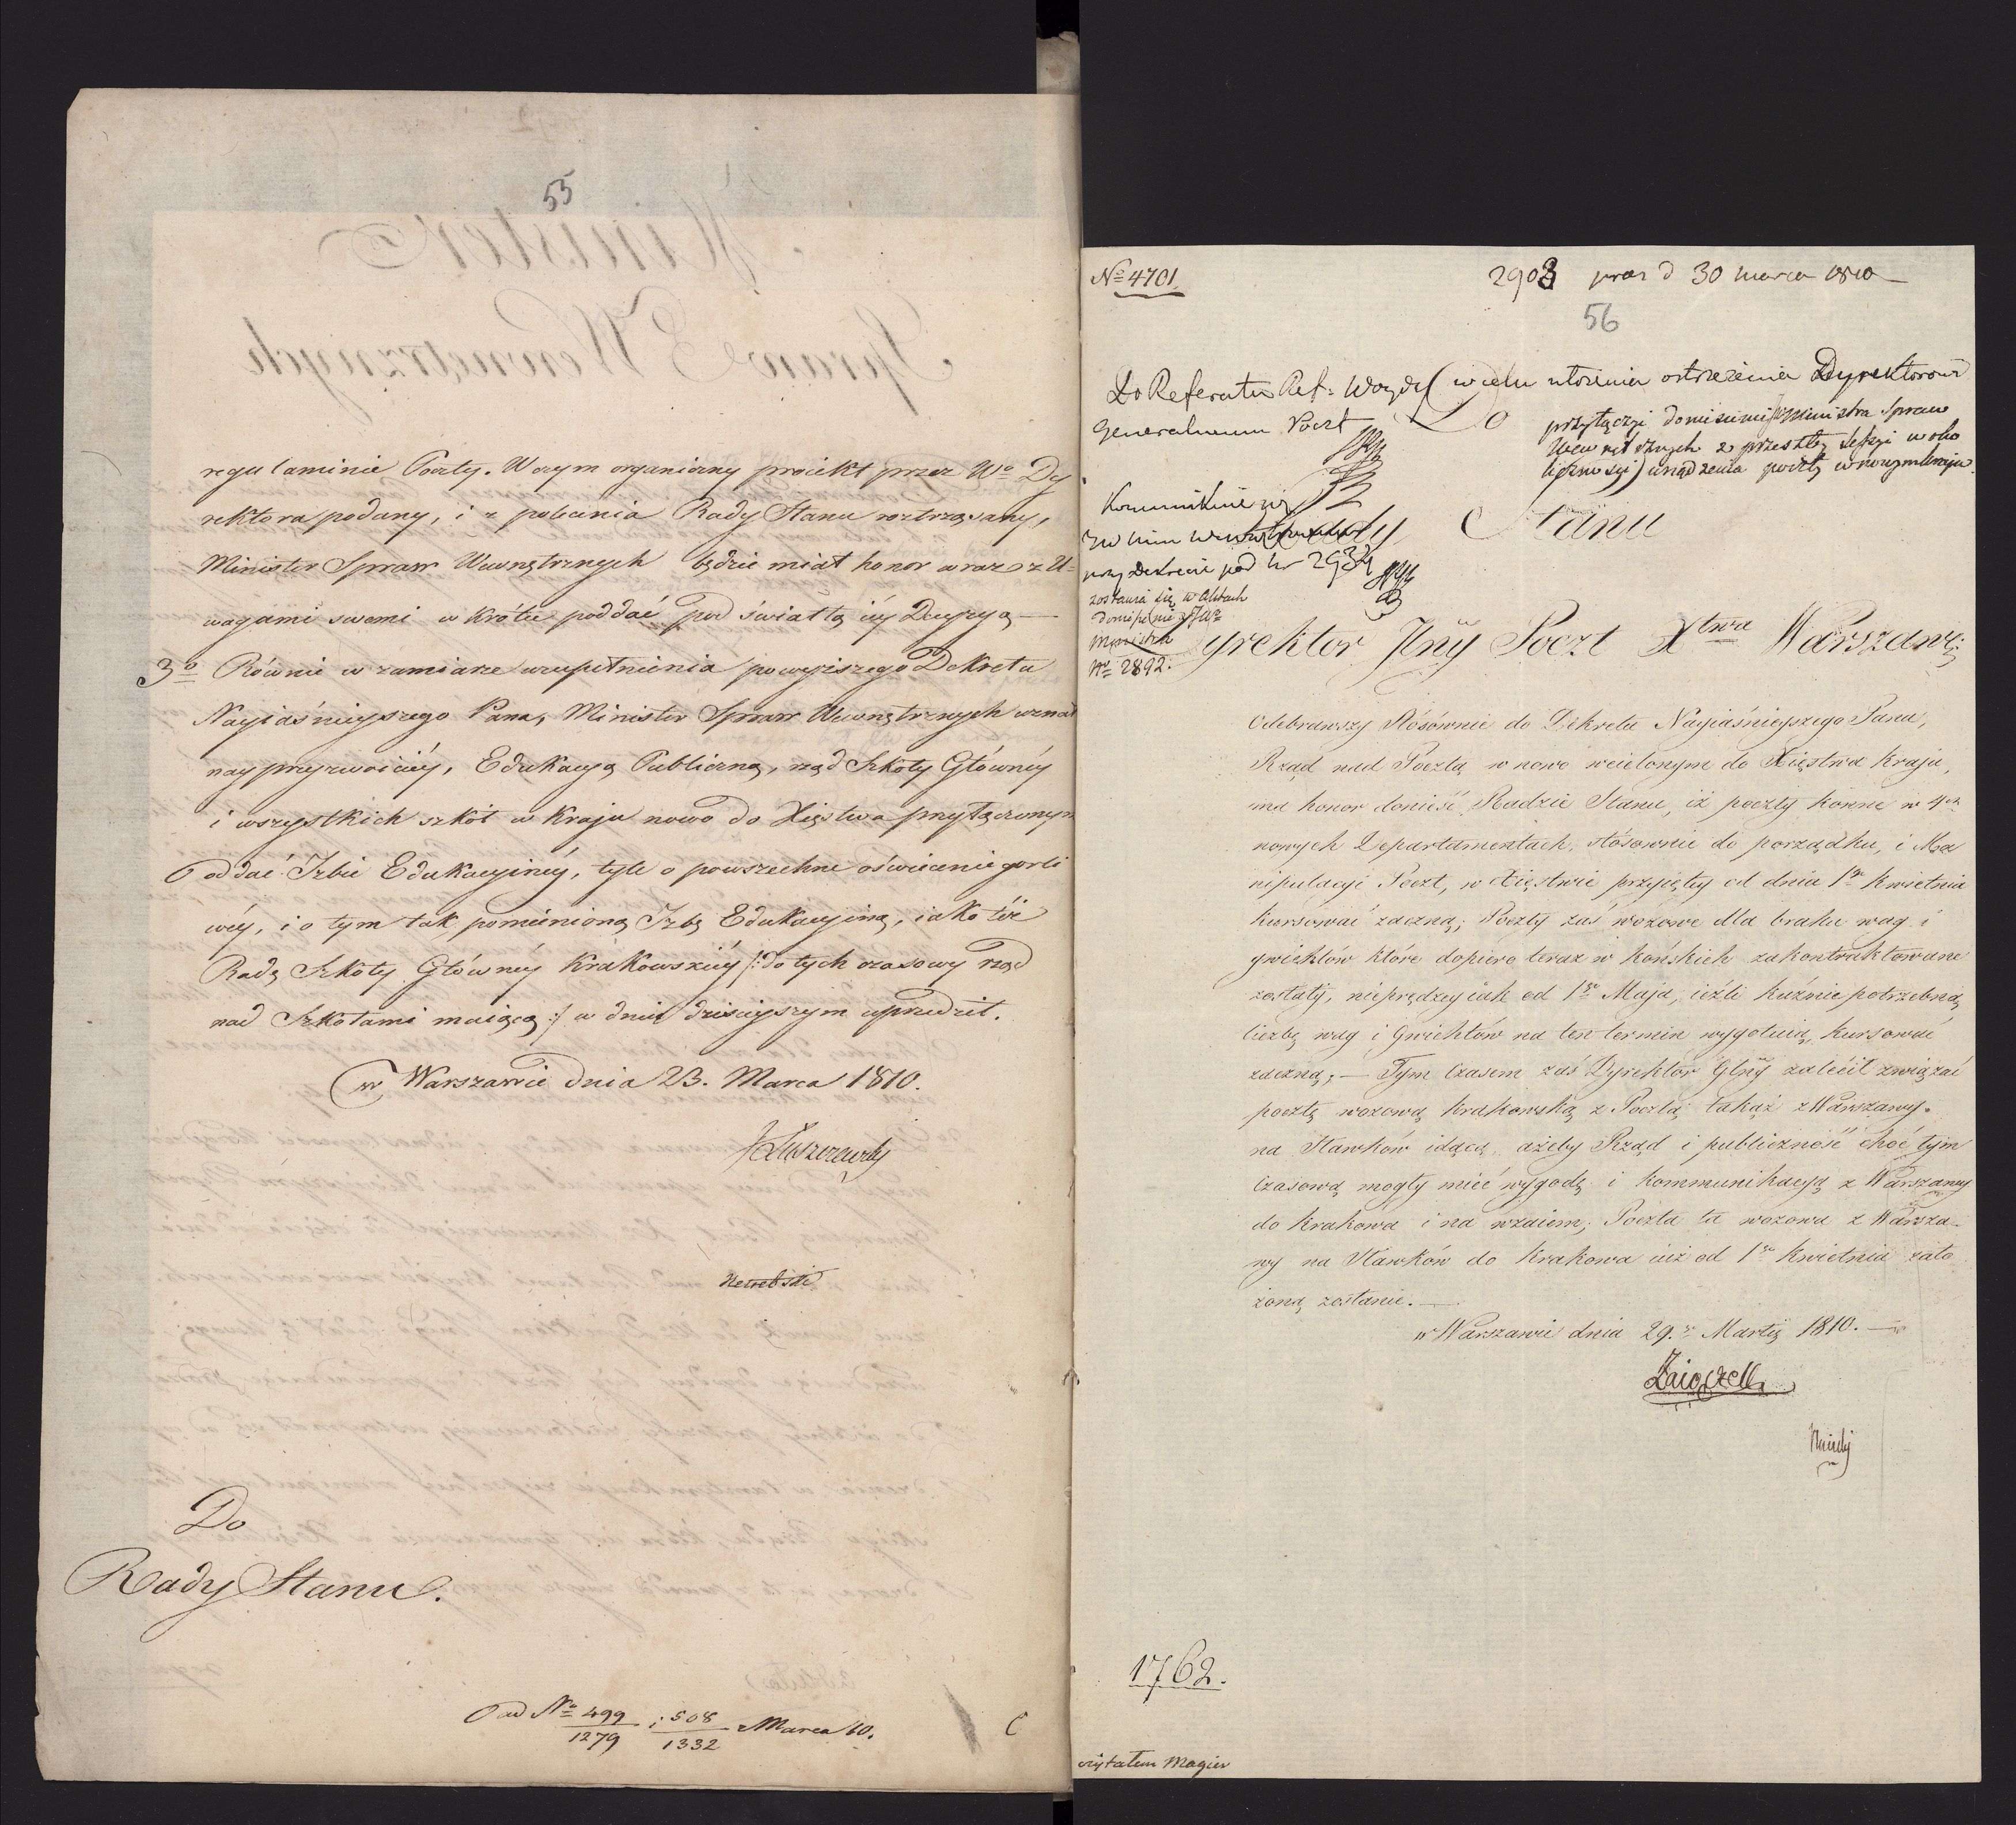 55
regulaminie Poczty. W czym organiczny proiekt przez Wo Dy
rektora podany, i z polecenia Rady Stanu roztrząsany,
Minister Spraw Wewnętrznych będzie miał honor wraz z U=
wagami swemi w krótce poddać pod światłą iéy Decyzyą —
3o Równie w zamiarze uzupełnienia powyższego Dekretu
Nayiaśnieyszego Pana, Minister Spraw Wewnętrznych uznał
nayprzyzwoiciéy, Edukacyą Publiczną, rząd Szkoły Głównéy
i wszystkich szkół w kraju nowo do Xięstwa przyłączonym
oddać Izbie Edukacyinéy, tyle o powszechne oświecenie gorli
wéy, i o tym tak pomienioną Izbę Edukacyiną, iako też
Radę Szkoły Głównéy Krakowskiéy /: do tych czasowy rząd
nad Szkołami maiącą :/ w dniu dzisieyszym uprzedził.
w Warszawie dnia 23. Marca 1810.
JŁuszczewski
Do
Rady Stanu.
ad No 499/1279 ; 508/1332 Marca 10.
No 4701
2903 praes d 30 marca 1810
56
Do Referatu Ref: Woyd (w celu ułożenia ostrzeżenia Dyrektorowi
Generalnemu Poczt
Do
przyłączyć doniesienie Ministra Spraw
Wewnętrznych z przeszłey sessyi w oko
liczności) urządzenia poczty w nowym kraju
Rady Stanu
przy Dekrecie pod Nr 2934
zostawia się w Aktach
Ministra
Nro 2892.
Dyrektor Jlny Poczt Xtwa Warszawq:
Odebrawszy stósównie do Dekretu Nayiaśnieyszego Pana,
Rząd nad Pocztą w nowo wcielonym do Xięstwa kraju,
ma honor donieść Radzie Stanu, iż poczty konne w 4ch
nowych Departamentach, stósownie do porządku, i Ma
nipulacyi Poczt, w Xięstwie przyiętey od dnia 1go Kwietnia
kursować zaczną; Poczty zaś wozowe dla braku wag i
gwichtów które dopiero teraz w Końskich zakontraktowane
zostały, nieprędzey iak od 1go Maja, ieźli kuźnie potrzebną
liczbę wag i Gwichtów na ten termin wygotuią, kursować
zaczną; — Tym czasem zaś Dyrektor Glny zalecił związać
pocztę wozową krakowską z Pocztą takąż z Warszawy
na Sławków idącą, ażeby Rząd i publiczność choć tym
czasową mogły mieć wygodę i kommunikacyą z Warszawy
do Krakowa i na wzaiem; Poczta ta wozowa z Warsza-
wy na Sławków do Krakowa iuż od 1go Kwietnia zało
żoną zostanie. —
w Warszawie dnia 29.go Martij 1810. —
Zaiączek
1762.
czytałem Magier